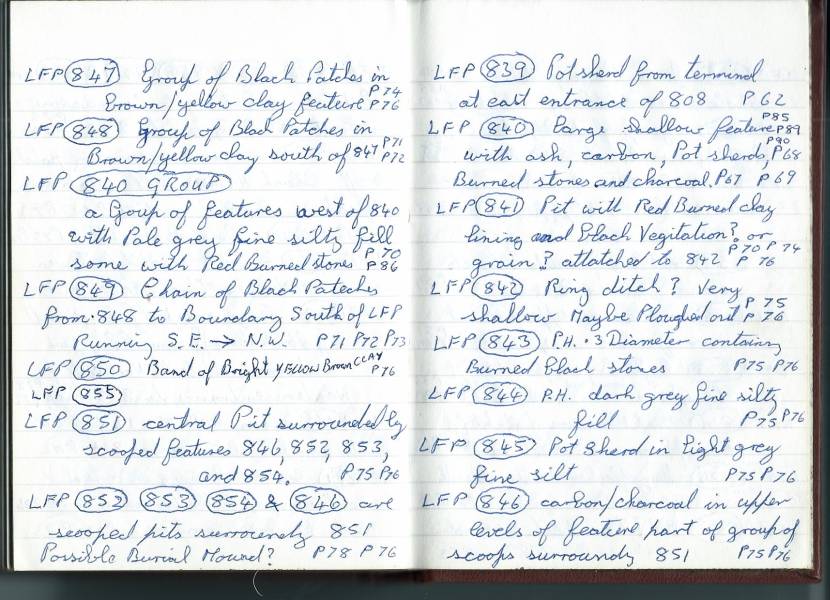 LFP 847 Group of Black Patches in
P74
Brown/yellow clay feature P76
LFP 848 Group of Black Patches in
P71
Brown/yellow clay south of 847 P72
LFP 840 GROUP
a Goup of features west of 840
with Pale grey fine silty fill
P70
some with Red Burned stones P86
LFP 849 Chain of Black Pateches
from 848 to Boundary South of LFP
Running S.E. → N.W. P71 P72 P73
LFP 850 Band of Bright YELLOW Brown CLAY
P76
LFP 855
LFP 851 central Pit surrounded by
scooped features 846, 852, 853,
and 854. P75 P76
LFP 852 853 854 & 846 are
scooped pits surroundg 851
Possible Burial Mound? P78 P76
LFP 839 Pot sherd from terminal
at east entrance of 808 P62
P85
LFP 840 Large shallow feature P89
P90
with ash, carbon, Pot sherds, P68
Burned stones and charcoal. P67 P69
LFP 841 Pit with Red Burned clay
lining and black Vegitation? or
P70 P74
grain? attatched to 842 P76
LFP 842 Ring ditch? Very
P75
shallow Maybe Ploughed out P76
LFP 843 P.H. .3 Diameter containg
Burned black stones P75 P76
LFP 844 P.H. dark grey fine silty
fill P75 P76
LFP 845 Pot Sherd in light grey
fine silt P75 P76
LFP 846 carbon/charcoal in upper
levels of feature part of group of
scoops surroundg 851 P75 P76